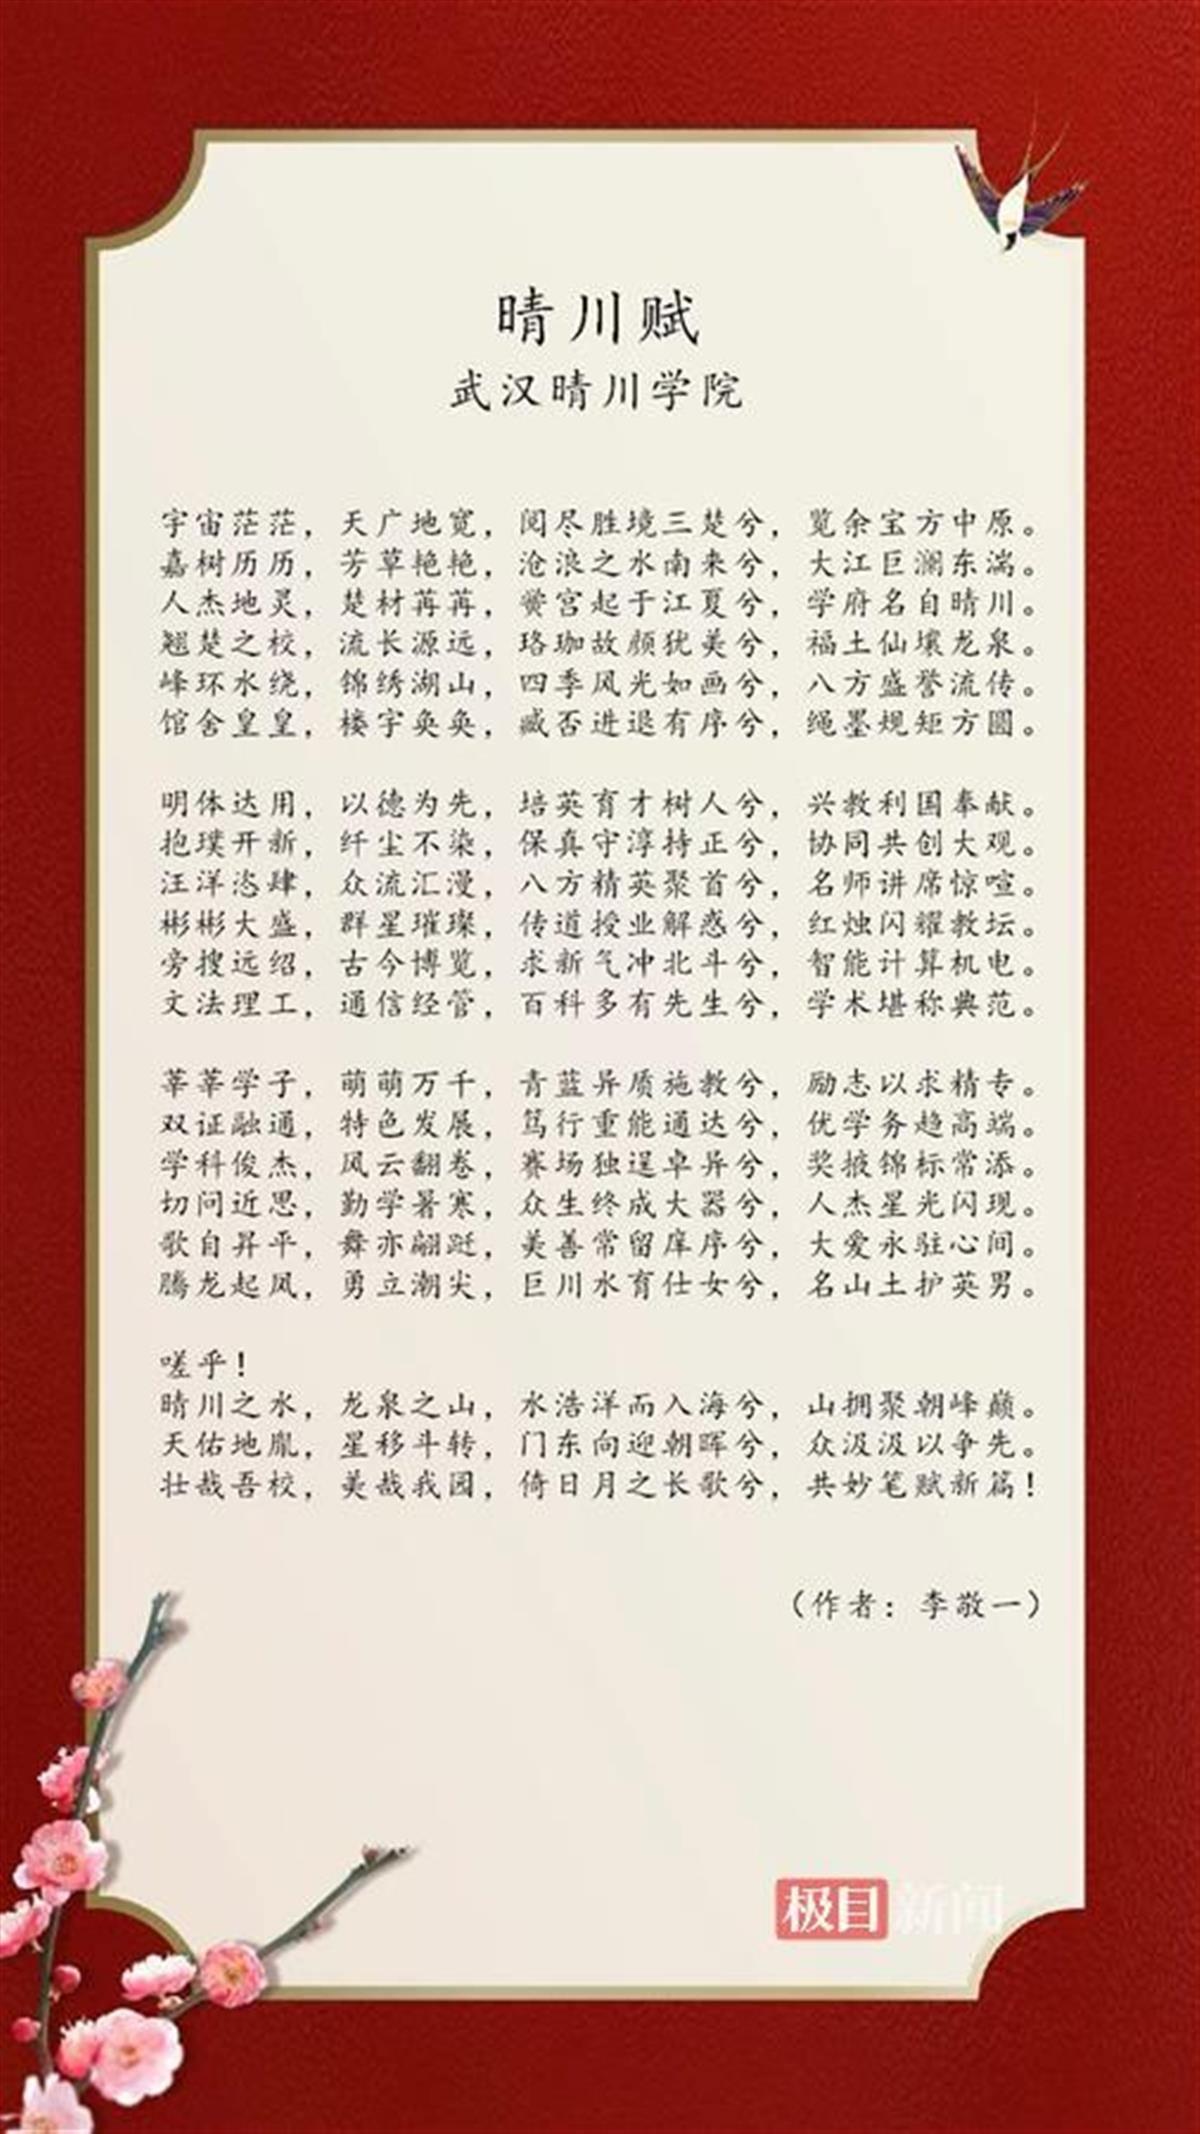 晴川赋
武汉晴川学院
宇宙茫茫，天广地宽，阅尽胜境三楚兮，览余宝方中原。
嘉树历历，芳草艳艳，沧浪之水南来兮，大江巨澜东湍。
人杰地灵，楚材苒苒，黉宫起于江夏兮，学府名自晴川。
翘楚之校，流长源远，珞珈故颜犹美兮，福土仙壤龙泉。
峰环水绕，锦绣湖山，四季风光如画兮，八方盛誉流传。
馆舍皇皇，楼宇奂奂，臧否进退有序兮，绳墨规矩方圆。
明体达用，以德为先，培英育才树人兮，兴教利国奉献。
抱璞开新，纤尘不染，保真守淳持正兮，协同共创大观。
汪洋恣肆，众流汇漫，八方精英聚首兮，名师讲席惊喧。
彬彬大盛，群星璀璨，传道授业解惑兮，红烛闪耀教坛。
旁搜远绍，古今博览，求新气冲北斗兮，智能计算机电。
文法理工，通信经管，百科多有先生兮，学术堪称典范。
莘莘学子，萌萌万千，青蓝异质施教兮，励志以求精专。
双证融通，特色发展，笃行重能通达兮，优学务趋高端。
学科俊杰，风云翻卷，赛场独逞卓异兮，奖掖锦标常添。
切问近思，勤学暑寒，众生终成大器兮，人杰星光闪现。
歌自昇平，舞亦翩跹，美善常留庠序兮，大爱永驻心间。
腾龙起凤，勇立潮尖，巨川水育仕女兮，名山土护英男。
嗟乎！
晴川之水，龙泉之山，水浩洋而入海兮，山拥聚朝峰巅。
天佑地胤，星移斗转，门东向迎朝晖兮，众汲汲以争先。
壮哉吾校，美哉我园，倚日月之长歌兮，共妙笔赋新篇！
（作者：李敬一）
极目新闻